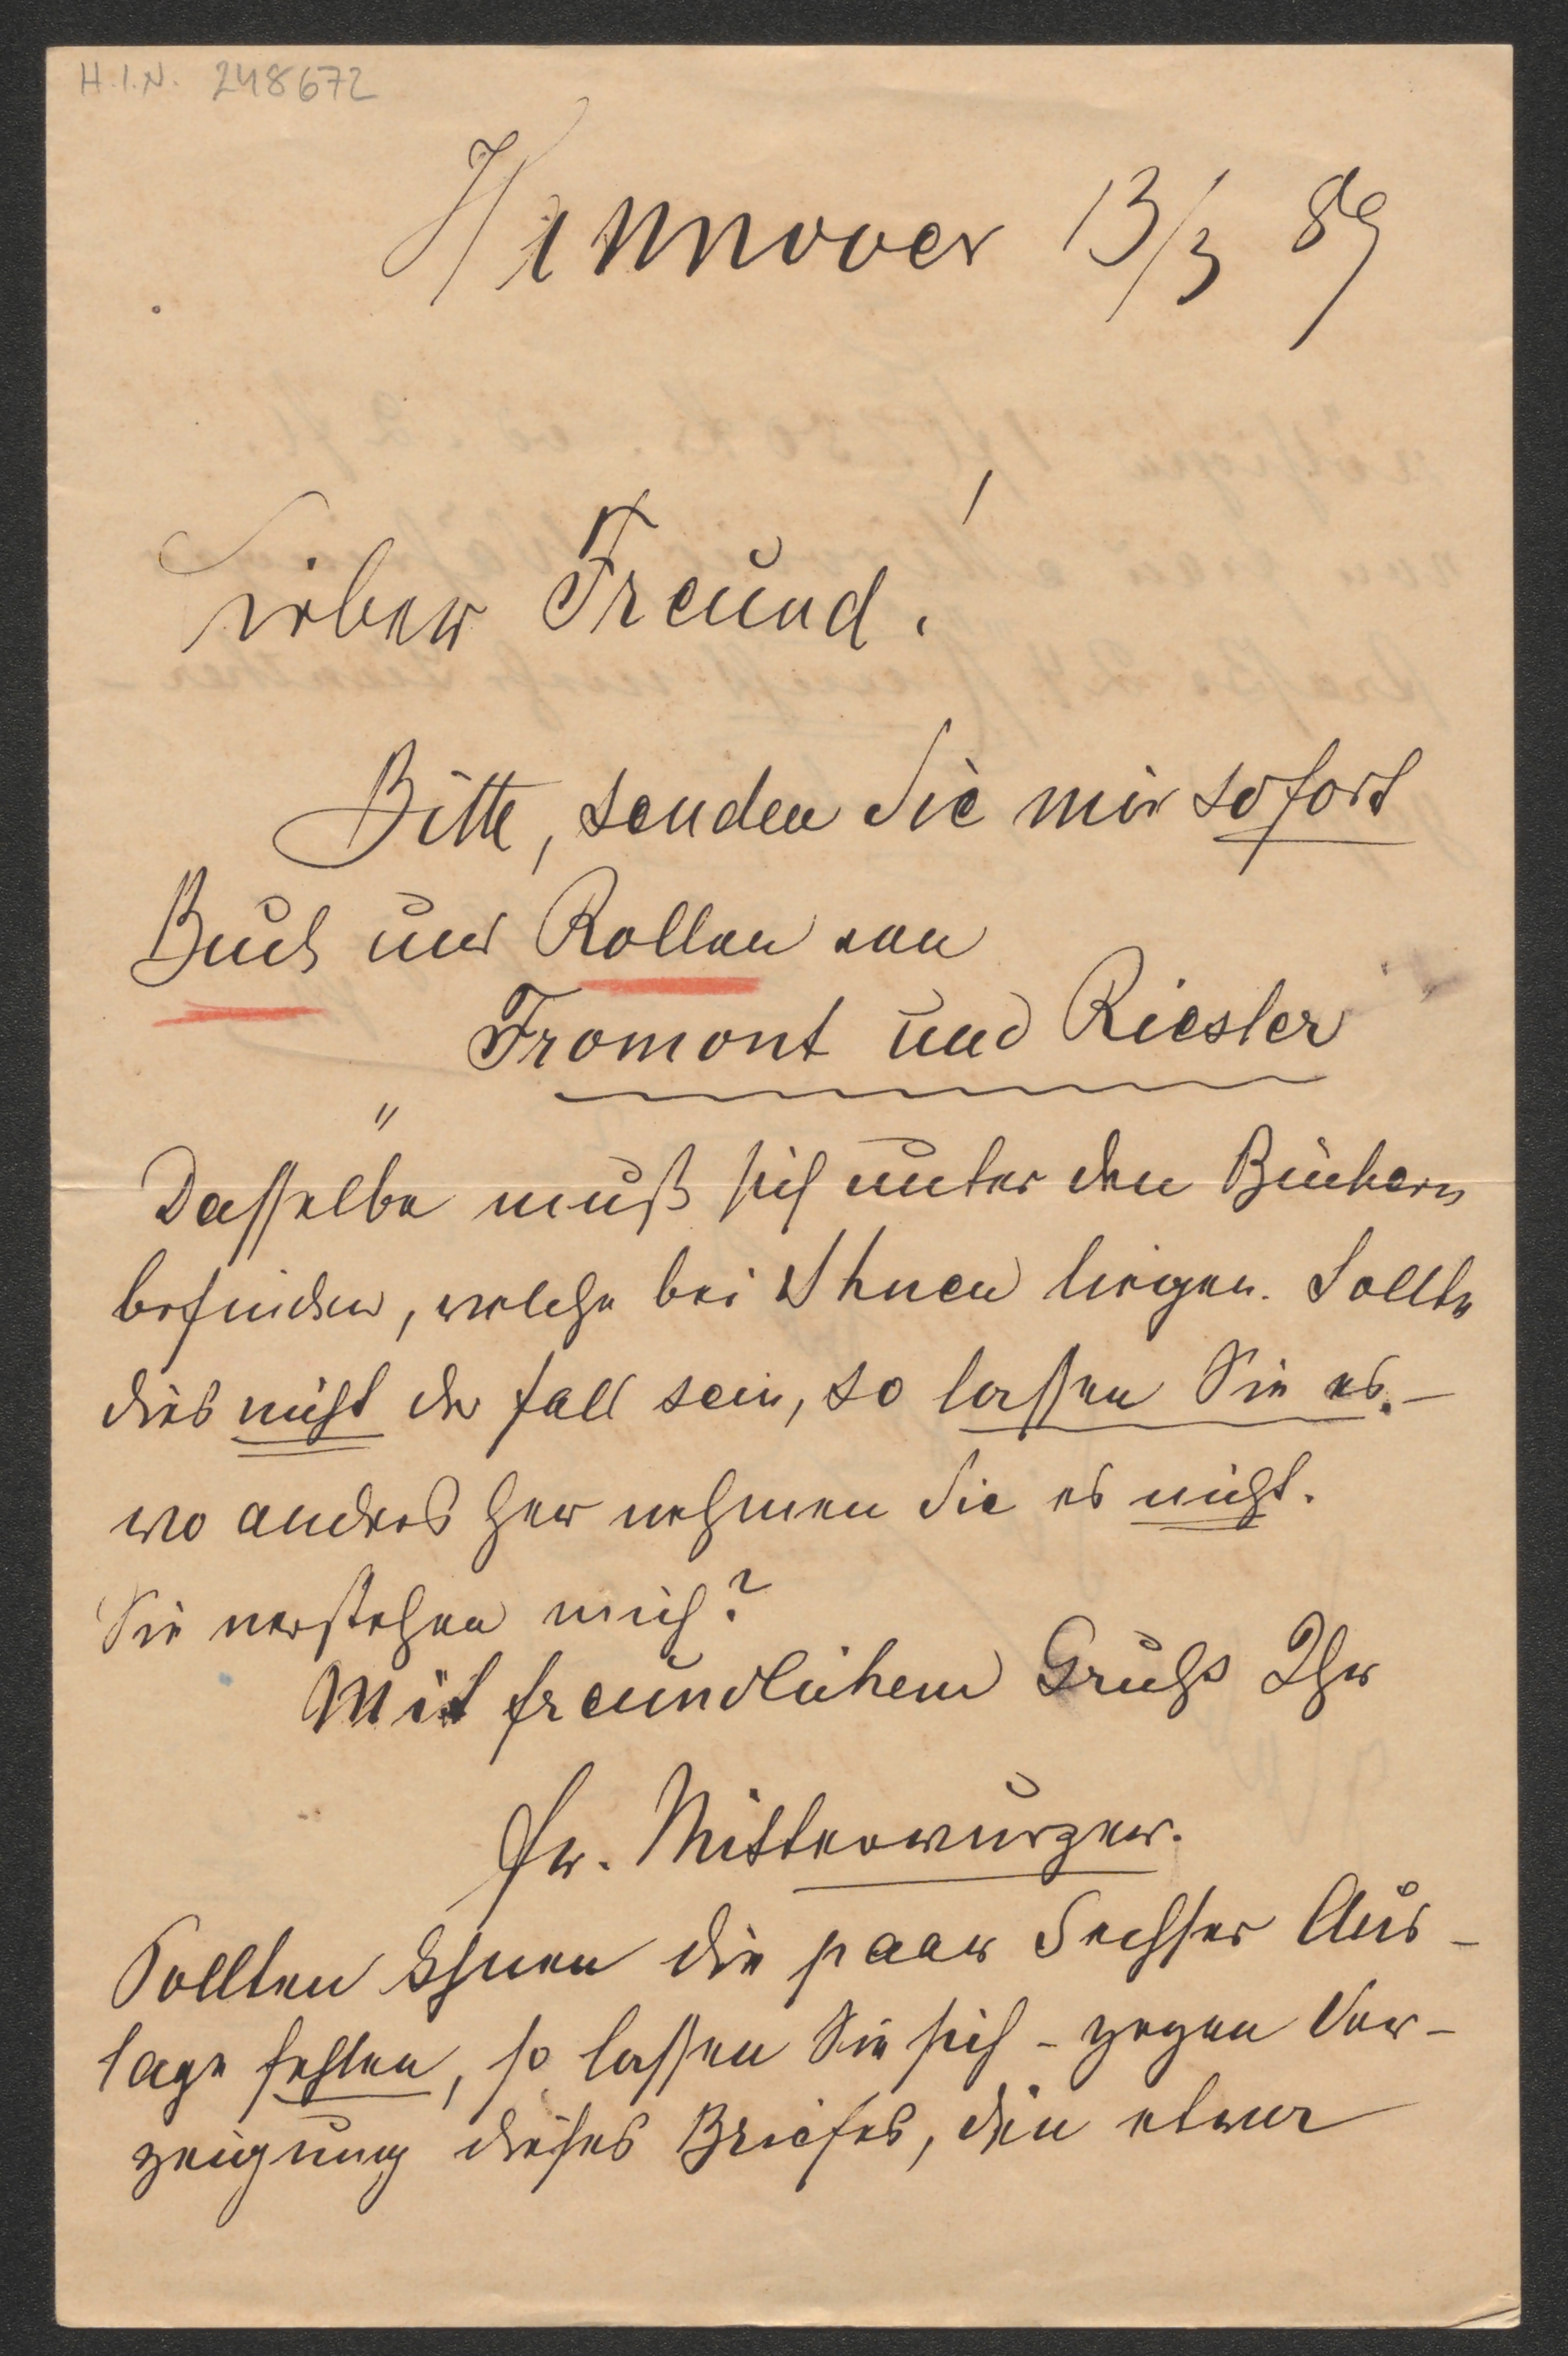 H.I.N. 248672
Hannover 13/3 89
Lieber Freund!
Bitte, senden Sie mir sofort
Buch und Rollen von
Fromont und Riesler
"
Dasselbe muß sich unter den Büchern
befinden, welche bei Ihnen liegen. Sollte
dies nicht der Fall sein, so lassen Sie es. –
wo anders her nehmen Sie es nicht.
Sie verstehen mich?
Mit freundlichem Gruß Ihr
Fr. Mitterwurzer.
Sollten Ihnen die paar Sechser Aus-
lage fehlen, so lassen Sie sich – gegen Vor-
zeigung dieses Briefes, die etwa